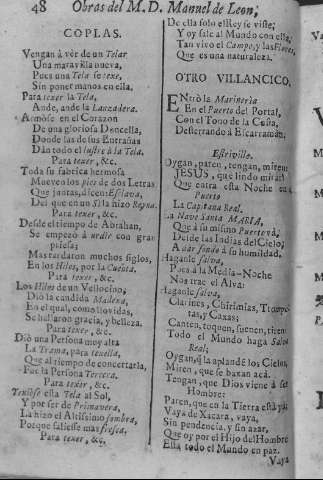 48 Obras del M. D. Manuel de Leon,
COPLAS.
Vengan à vèr de un Telar
Una maravilla nueva,
Pues una Tela se texe,
Sin poner manos en ella.
Para texer la Tela,
Ande, ande la Lanzadera.
Armòse en el Corazon
De una gloriosa Doncella,
Donde las de sus Entrañas
Dàn todo el lustre à la Tela.
Para texer, &c.
Toda su fabrica hermosa
Mueven los piez de dos Letras
Que juntas, dicen: Esclava,
Dei que en un Si la hizo Reyna.
Para texer, &c.
Desde el tiempo de Abrahan,
Se empezò à urdir con gran
priesa;
Mas tardaron muchos siglos,
En los Hilos, por la Cuenta.
Para texer, &c.
Los Hilos de un Vellocino,
Diò la candida Madexa,
En el qual, como llovidas,
Se hallaron gracia, y belleza.
Para texer, &c.
Diò una Persona muy alta
La Trama, para texella,
Que al tiempo de concertarla,
Fue la Persona Tercera.
Para texer, &c.
Texòse esta Tela al Sol,
Y por ser de Primavera,
La hizo el Altissimo sombra,
Porque saliesse mas fresca,
Para texer, &c.
De ella solo el Rey se viste;
Y oy sale al Mundo con ella,
Tan vivo el Campo, y las Flores,
Que es una naturaleza.
OTRO VILLANCICO.
ENtrò la Marineria
En el Puerto del Portal,
Con el Tono de la Cuna,
Desterrando à Escarramàn.
Estrivillo.
Oygan, paren, tengan, miren:
JESUS, que lindo mirar!
Que entra esta Noche en el
Puerto
La Capitana Real.
La Nave Santa MARIA,
Que à su mismo Puerto và,
Desde las Indias del Cielo;
A dàr fondo à su humildad.
Haganle salva,
Pues à la Media-Noche
Nos trae el Alva:
Haganle salva,
Clarines, Chirimias, Trompetas,
y Caxas;
Canten, toquen, suenen, tiren:
Todo el Mundo haga Salva
Real;
Oygan, q̃ la aplaudẽ los Cielos,
Miren, que se baxan acà.
Tengan, que Dios viene à ser
Hombre:
Paren, que en la Tierra està yà:
Vaya de Xacara, vaya,
Sin pendencia, y sin azar,
Que oy por el Hijo del Hombre
Està todo el Mundo en paz.
Vaya